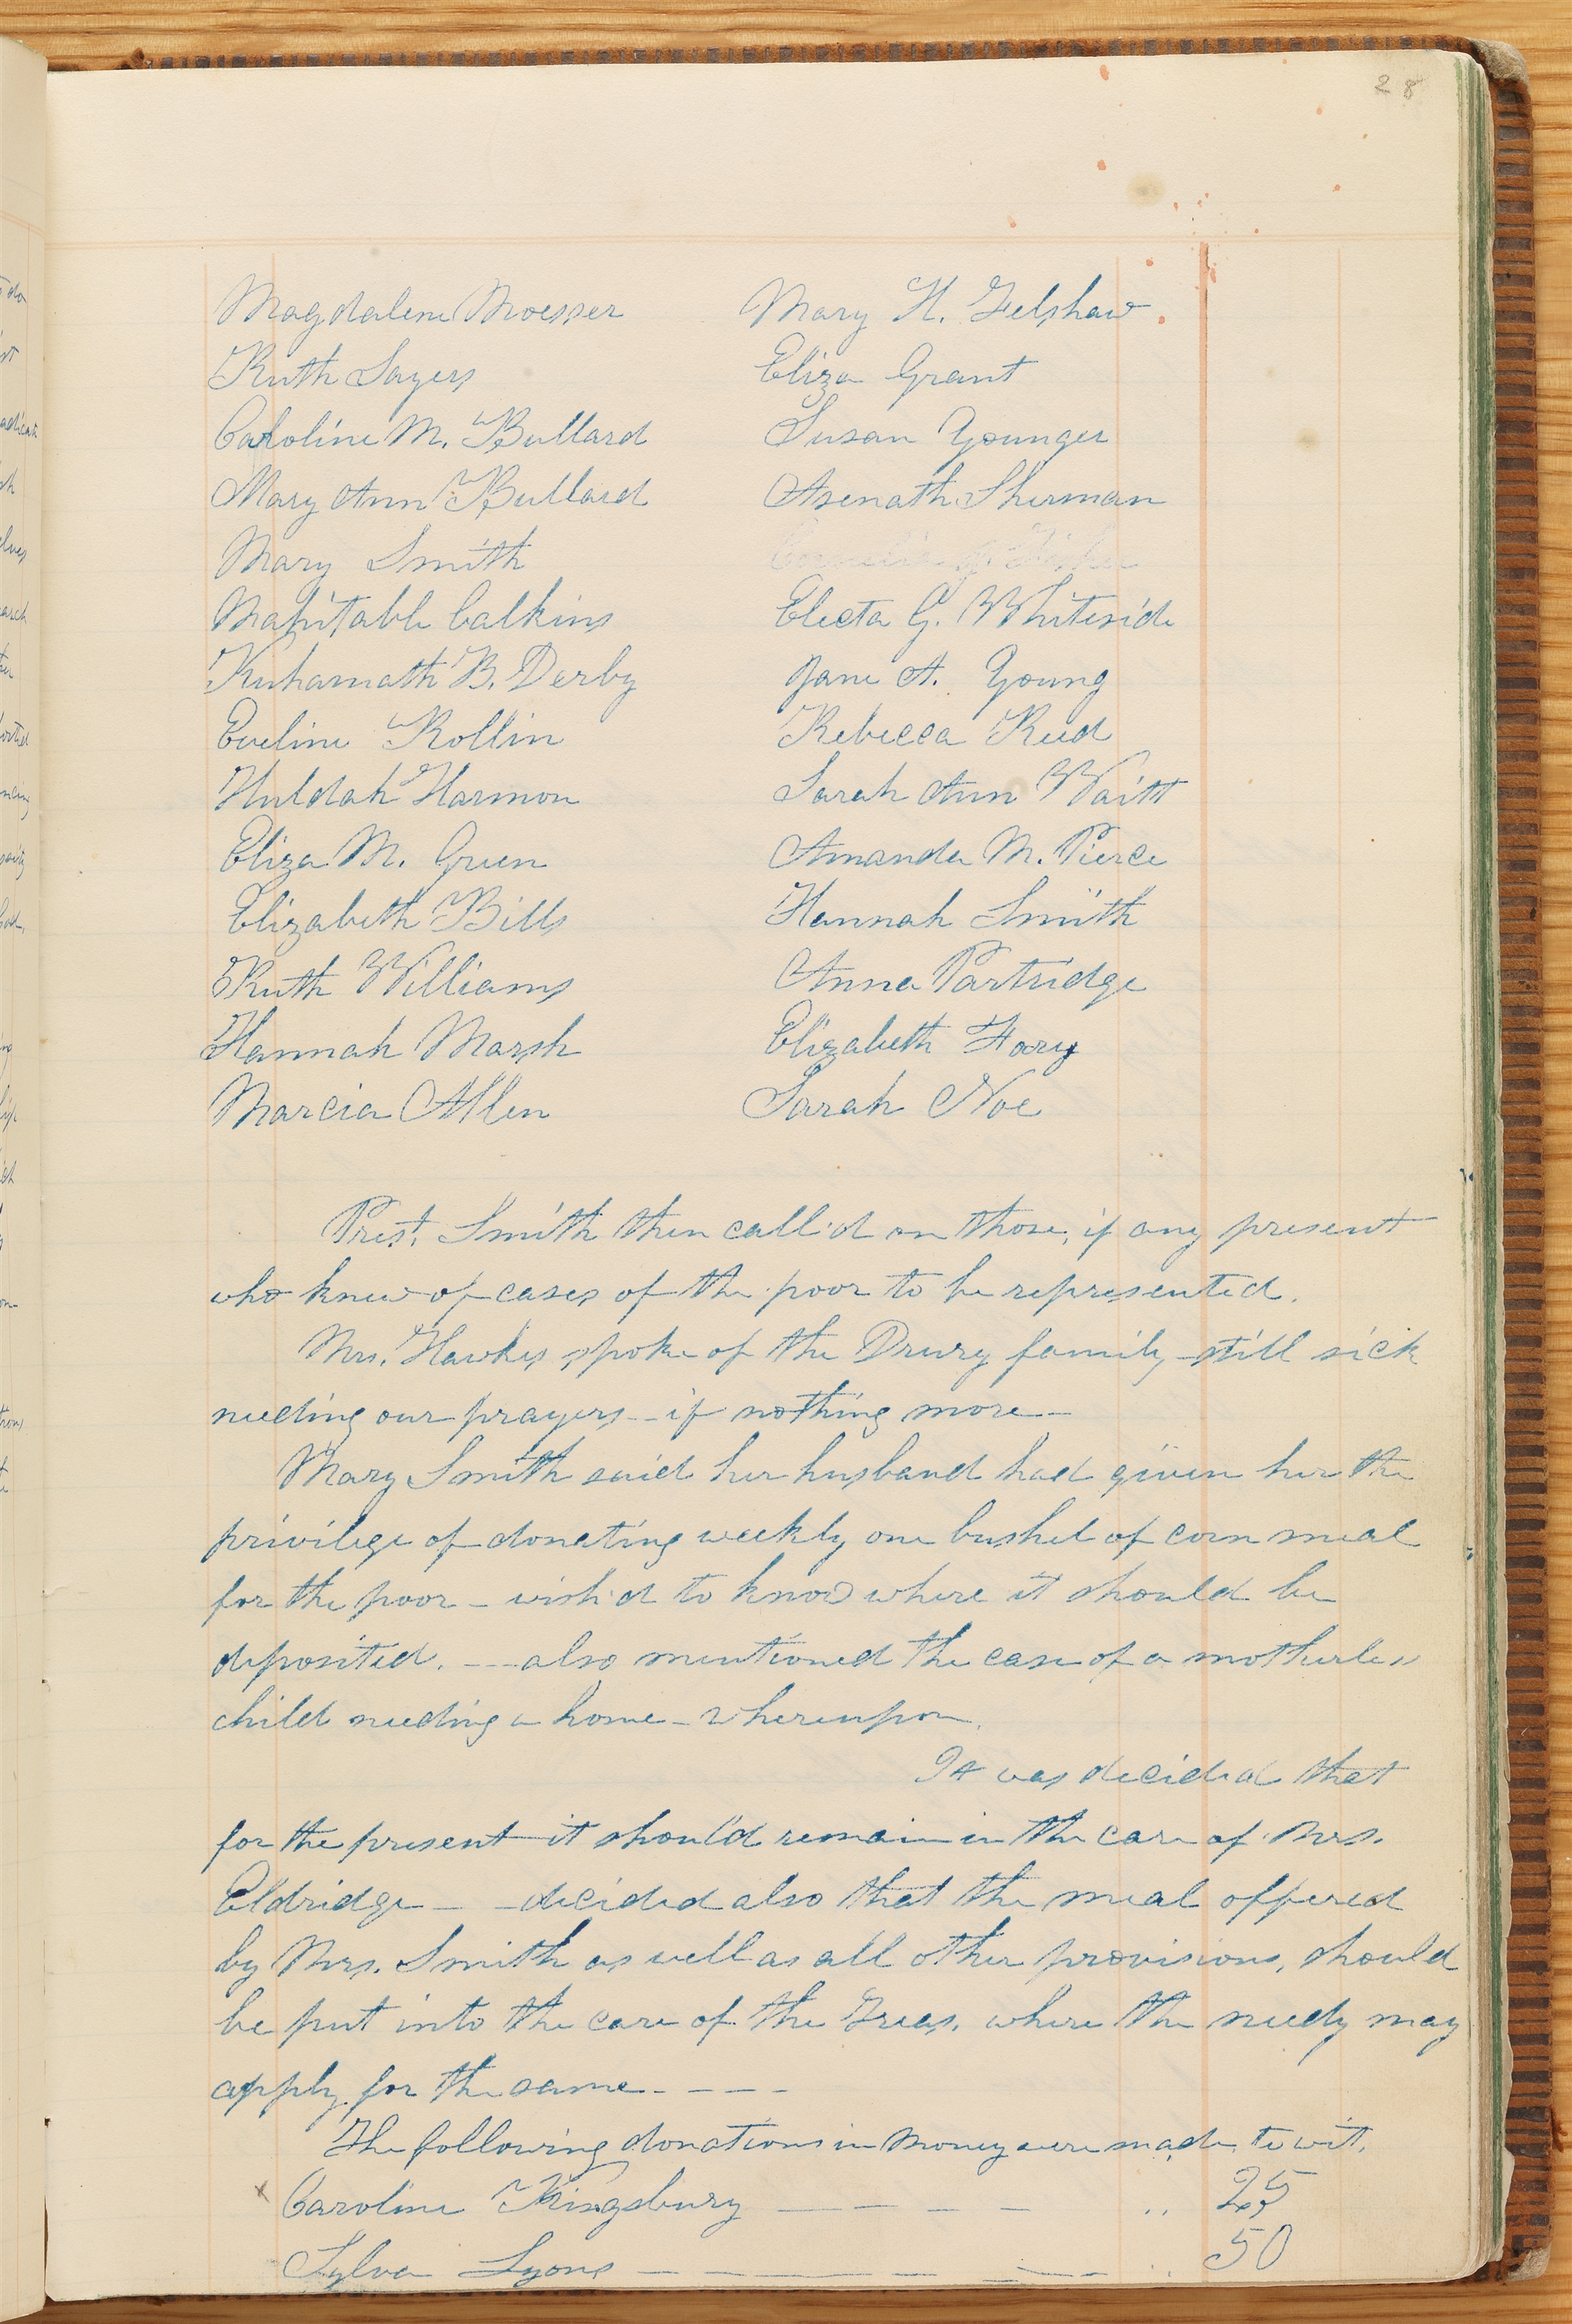 28
Magdalene Moesser
Ruth Sayers
Caroline M. Bullard
Mary Ann Bullard
Mary Smith
Mahitable Calkins
Ruhamath B. Derby
Eveline Rollin
Huldah Harmon
Eliza M. Green
Elizabeth Bills
Ruth Williams
Hannah Marsh
Marcia Allen
Mary H. Gelshaw
Eliza Grant
Susan Younger
Asenath Sherman
Electa G. Whiteside
Jane A. Young
Rebecca Reed
Sarah Ann Waitt
Amanda M. Pierce
Hannah Smith
Anna Partridge
Elizabeth Hoary
Sarah Noe
Prest. Smith then call'd on those, if any present
who knew of cases of the poor to be represented.
Mrs. Hawkes spoke of the Drury family—still sick
needing our prayers—if nothing more—
Mary Smith said her husband had given her the
privilege of donating weekly one bushel of corn meal
for the poor—wish'd to know where it should be
deposited.—also mentioned the case of a motherless
child needing a home—whereupon,
It was decided that
for the present it should remain in the care of Mrs.
Eldridge— —decided also that the meal offered
by Mrs. Smith as well as all other provisions, should
be put into the care of the Treas. where the needy may
apply for the same- - - -
The following donations in money were made, to wit,
x Caroline Kingsbury — — — — " 25
Sylva Lyons — — — — — " 50